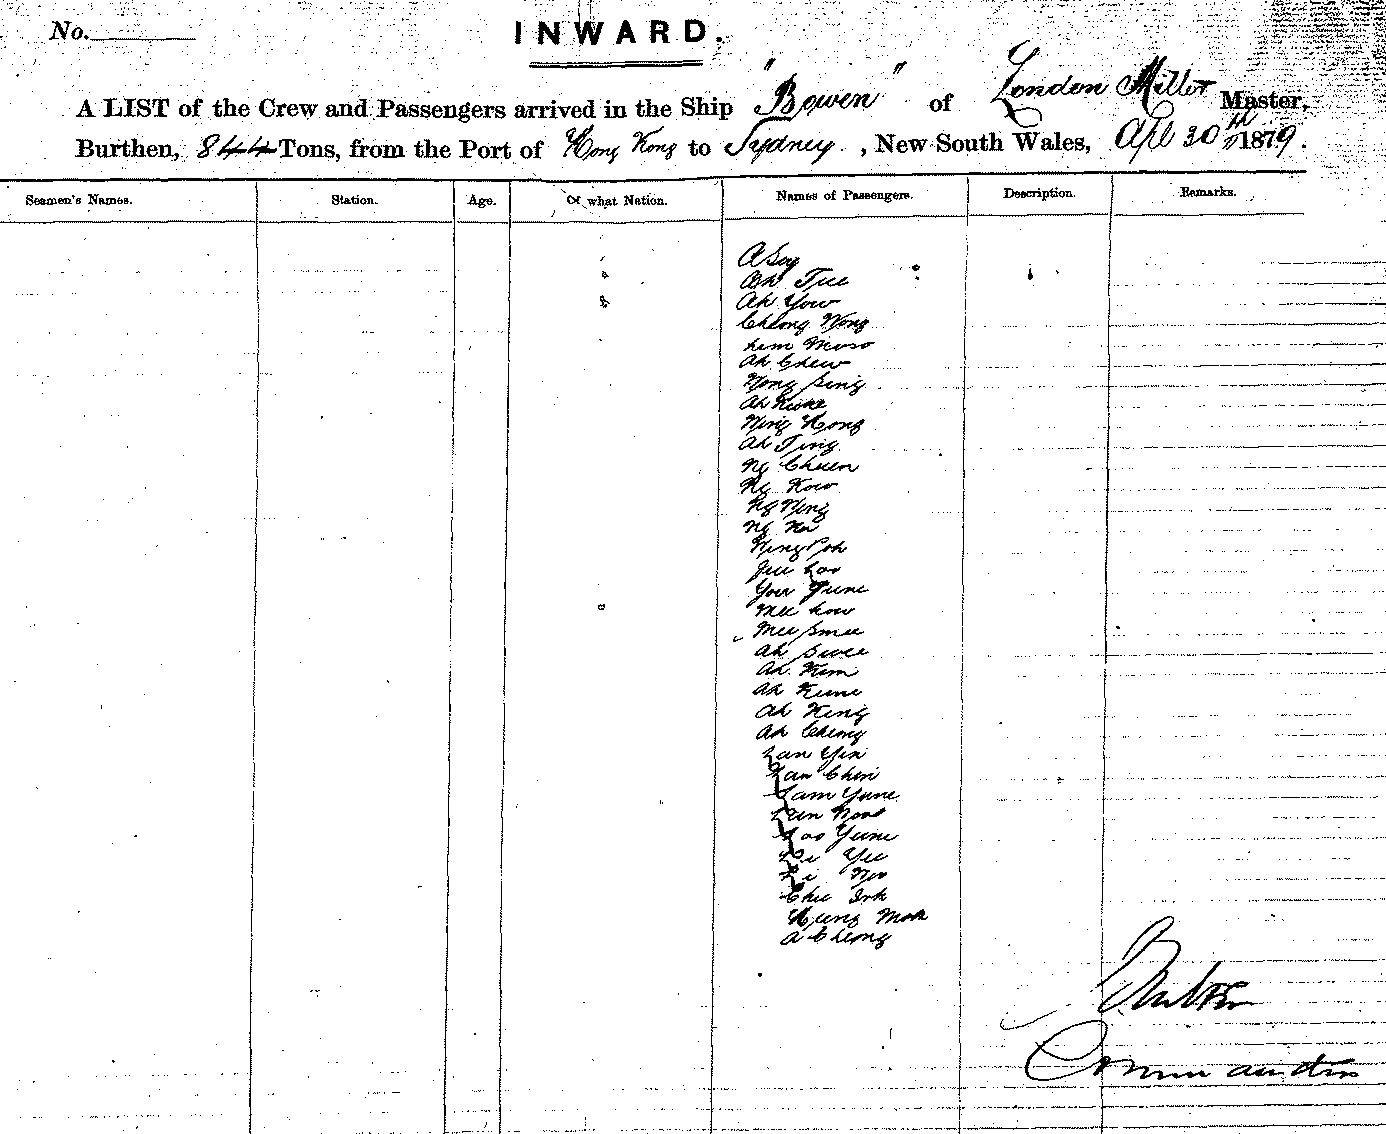 No.
INWARD.
A LIST of the Crew and Passengers arrived in the Ship "Bowen" of London Miller Master,
Burthen, 844 Tons, from the Port of Hong Kong to Sydney, New South Wales, Apl 30th 1879.
Seamen's Names. Station. Age. Of what Nation. Names of Passengers. Description. Remarks.
A Soy
Ah Tue
Ah Yow
Cheong Wong
Lem
Ah Chew
Wong Sing
Ah
Ning Hong
Ah Ting
Ng Chuen
Ng Kow
Ng Ning
Ng
Ning Poh
Loo
You Yune
Mee Low
Mee Smee
Ah Swee
Ah Kim
Ah Kune
Ah King
Ah Cheong
Lan Yin
Lan Chin
Lam Yune
Lun
Loo Yune
Li Yee
Li
Chu
Hung Mok
A Cheong
Commander